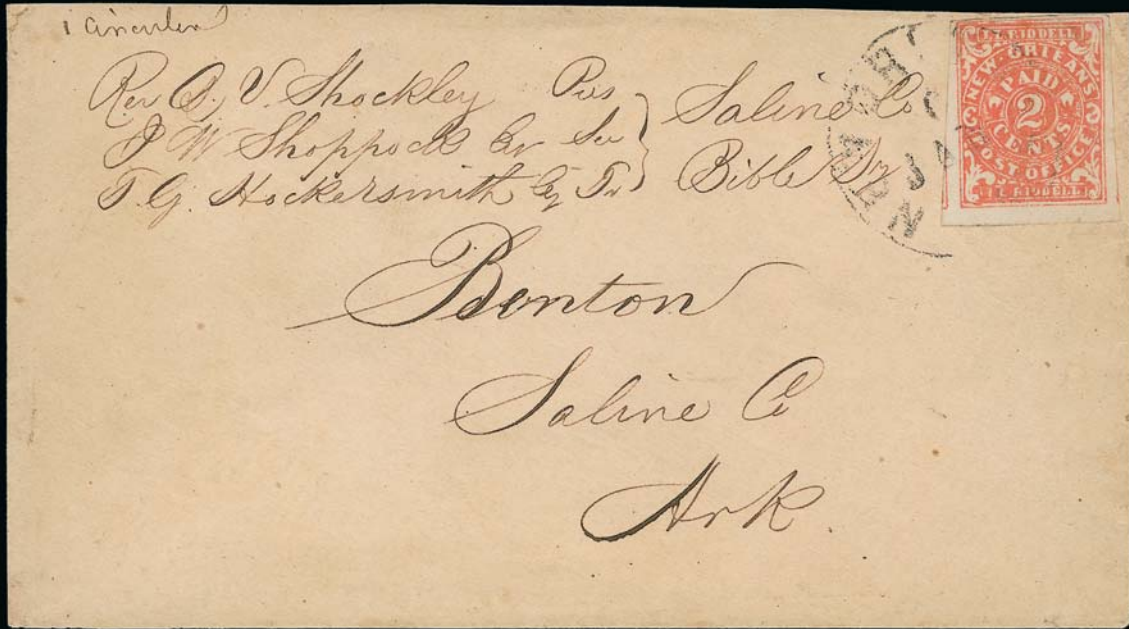 1 Circular
Rev D. V. Shockley Pres
J W Shoppock Cor Sec
T. G. Hockersmith Esq Tr
Saline Co
Bible Sy
Benton
Saline Co
Ark.
J. L. RIDDELL
NEW-ORLEANS
PAID
2
CENTS
POST OFFICE
J. L. RIDDELL